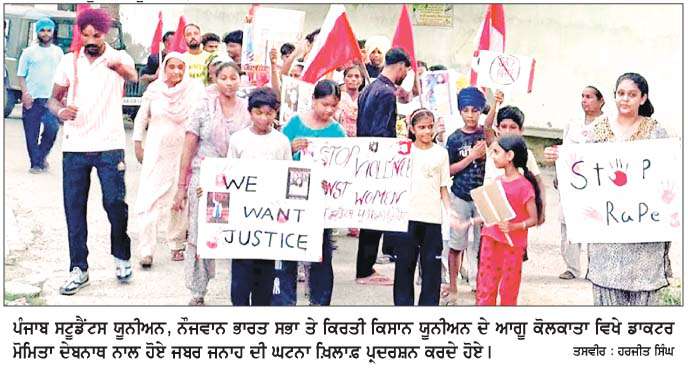 WE
WANT
JUSTICE
STOP VIOLENCE
NST WOMEN
STOP
RaPe
ਪੰਜਾਬ ਸਟੂਡੈਂਟਸ ਯੂਨੀਅਨ, ਨੌਜਵਾਨ ਭਾਰਤ ਸਭਾ ਤੇ ਕਿਰਤੀ ਕਿਸਾਨ ਯੂਨੀਅਨ ਦੇ ਆਗੂ ਕੋਲਕਾਤਾ ਵਿਖੇ ਡਾਕਟਰ
ਮੋਮਿਤਾ ਦੇਬਨਾਥ ਨਾਲ ਹੋਏ ਜਬਰ ਜਨਾਹ ਦੀ ਘਟਨਾ ਖ਼ਿਲਾਫ਼ ਪ੍ਰਦਰਸ਼ਨ ਕਰਦੇ ਹੋਏ।
ਤਸਵੀਰ : ਹਰਜੀਤ ਸਿੰਘ